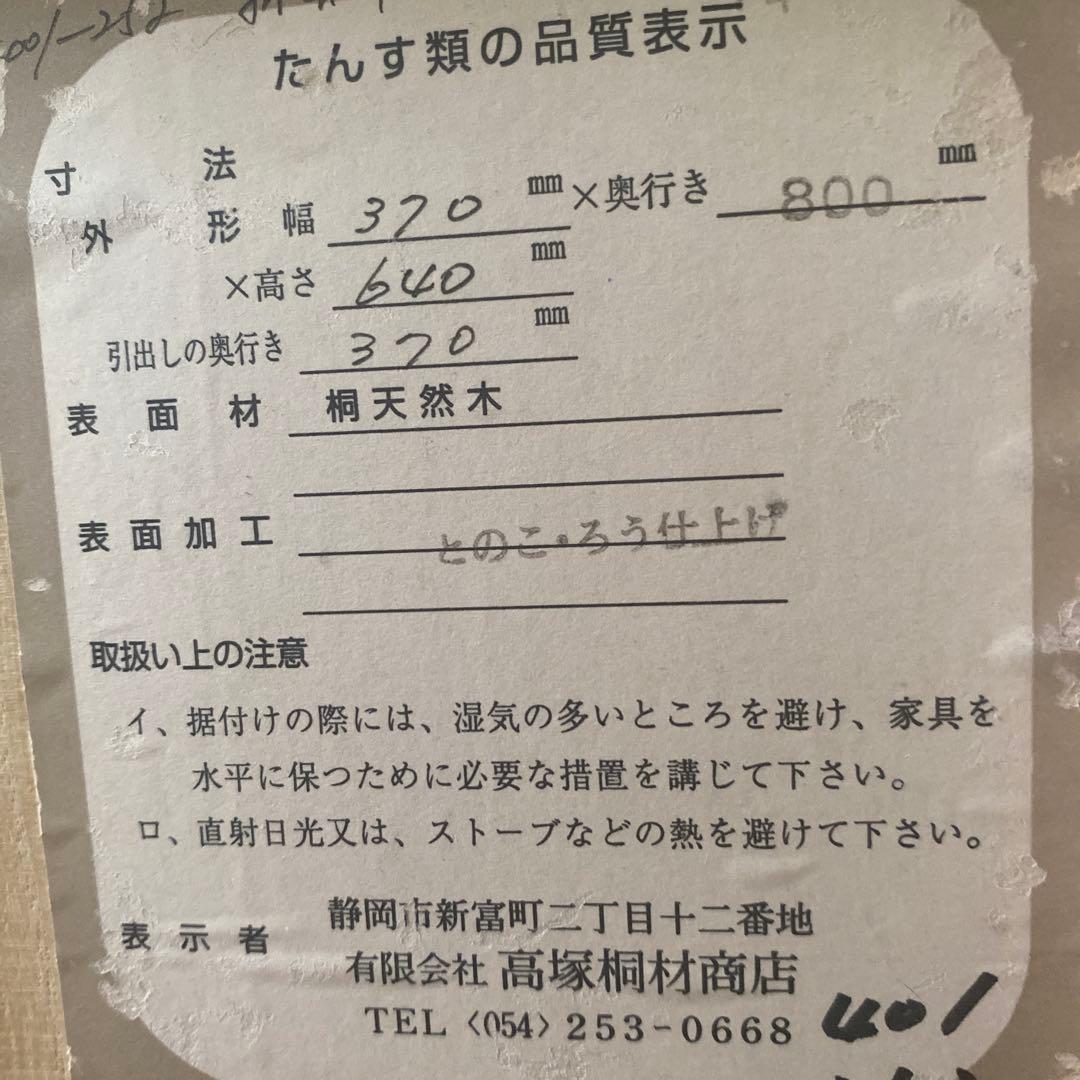 001-252
たんす類の品質表示
寸法
外形 幅 370 mm ×奥行き 800 mm
×高さ 640 mm
引出しの奥行き 370 mm
表面材 桐天然木
表面加工 とのこ・ろう仕上げ
取扱い上の注意
イ、据付けの際には、湿気の多いところを避け、家具を
水平に保つために必要な措置を講じて下さい。
ロ、直射日光又は、ストーブなどの熱を避けて下さい。
表示者 静岡市新富町二丁目十二番地
有限会社 高塚桐材商店
TEL〈054〉253-0668
401